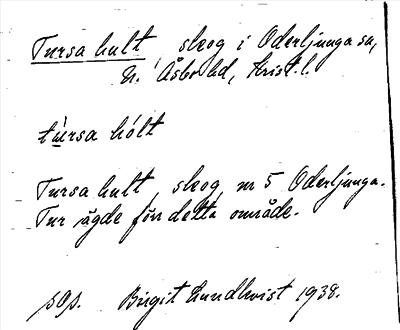 Tursa hult, skog i Oderljunga sn,
N. Åsbo hd, Krist. l.
tùrsa hólt
Tursa hult, skog, nr 5 Oderljunga.
Tur ägde förr detta område.
sOp. Birgit Lundkvist 1938.